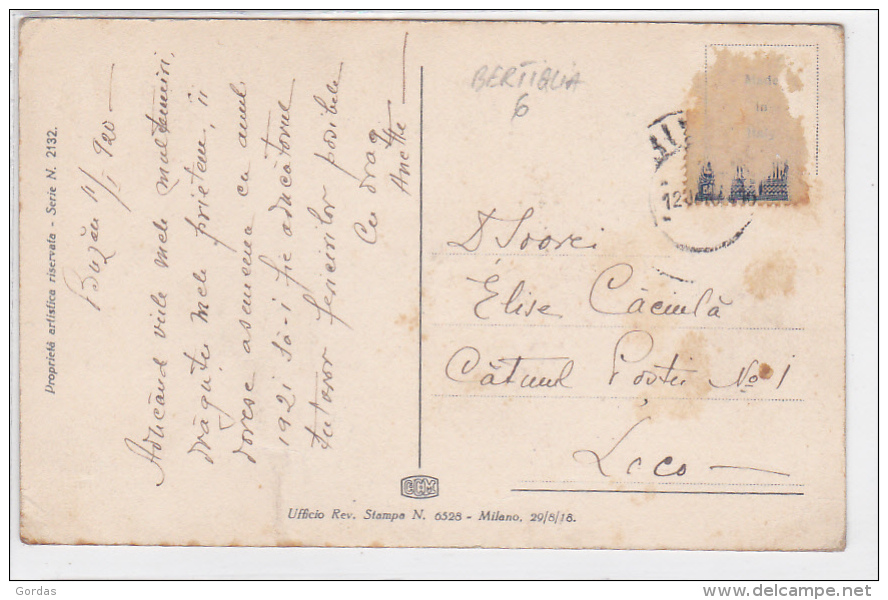 Proprietà artistica riservata - Serie N. 2132.
Buzău 11/I 920 —
Aducând viile mele mulțumiri,
drăguței mele prietene, îi
doresc asemenea ca anul
1921 să-i fie aducătorul
tutoror fericirilor posibile
Cu drag
Anette —
BERTIGLIA
6
Made
in
12
Elise Căciulă
Cătunul Poștei No 1
Loco —
CCM
Ufficio Rev. Stampa N. 6528 - Milano, 29/8/18.
Gordas
delcampe.net